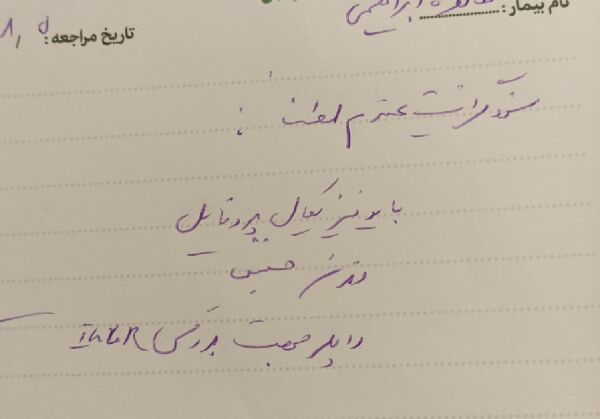 نام بیمار: ابراهیمی
تاریخ مراجعه:
سونوگرافیست محترم لطفا:
بایوفیزیکال پروفایل
وزن جنین
داپلر جهت بررسی IUGR